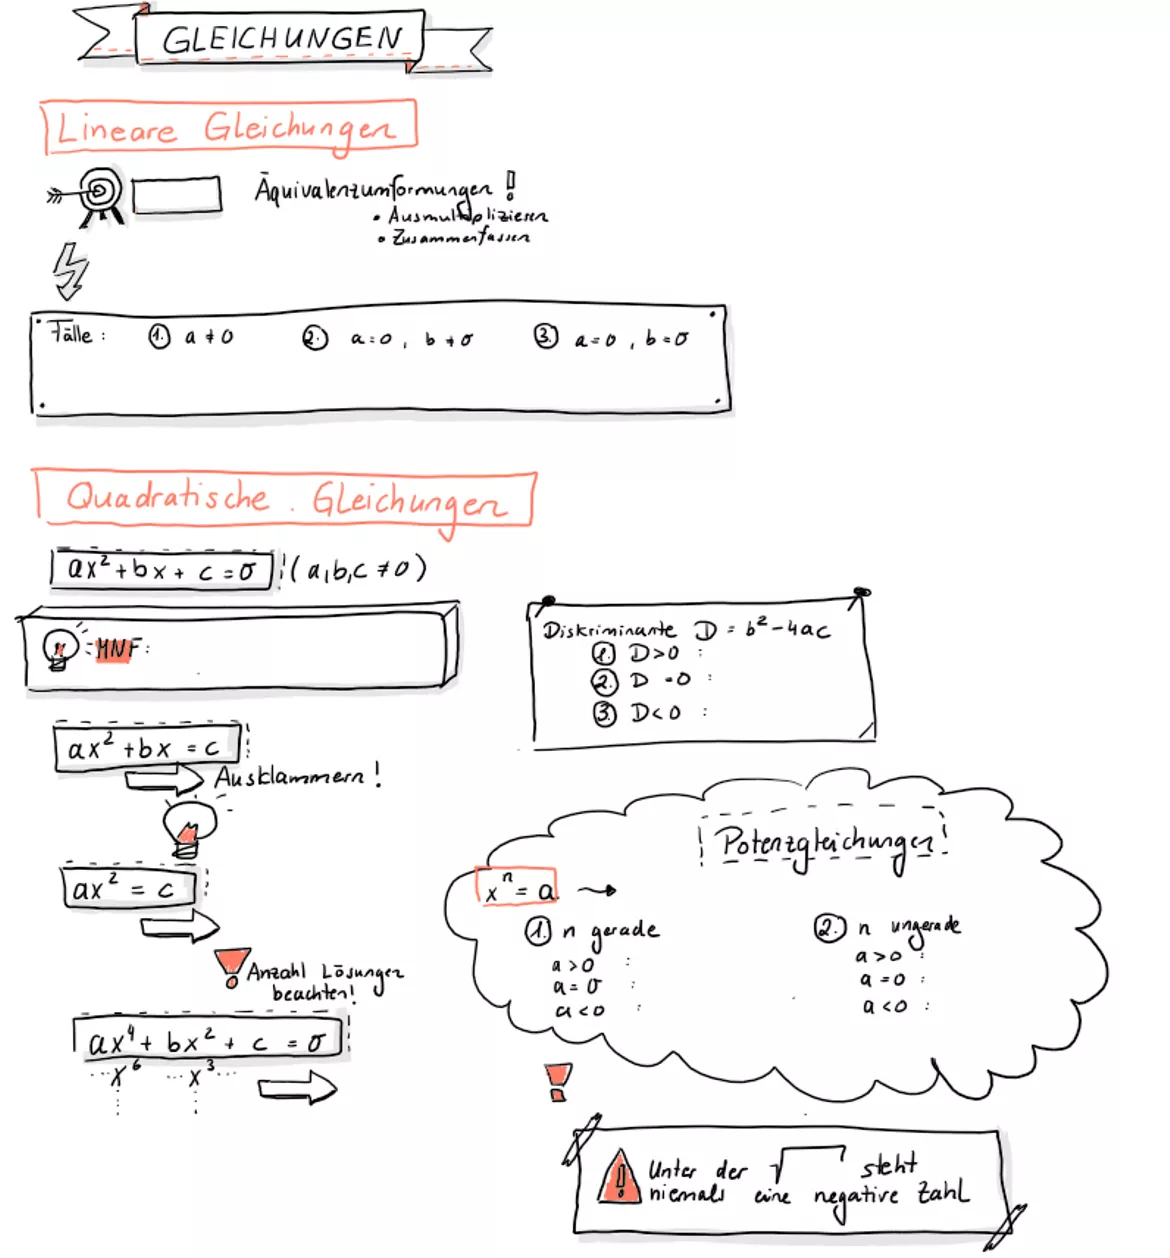 GLEICHUNGEN
Lineare Gleichungen
Äquivalenzumformungen !
• Ausmultiplizieren
• Zusammenfassen
Fälle : 1. a ≠ 0 2. a = 0 , b ≠ 0 3. a = 0 , b = 0
Quadratische . Gleichungen
ax² + bx + c = 0 (a,b,c ≠ 0)
MNF:
Diskriminante D = b² - 4ac
1. D > 0 :
2. D = 0 :
3. D < 0 :
ax² + bx = c
Ausklammern !
ax² = c
! Anzahl Lösungen
beachten!
ax⁴ + bx² + c = 0
... x⁶ ... x³ ...
Potenzgleichungen
xⁿ = a →
1. n gerade
a > 0 :
a = 0 :
a < 0 :
2. n ungerade
a > 0 :
a = 0 :
a < 0 :
!
! Unter der √ steht
niemals eine negative Zahl